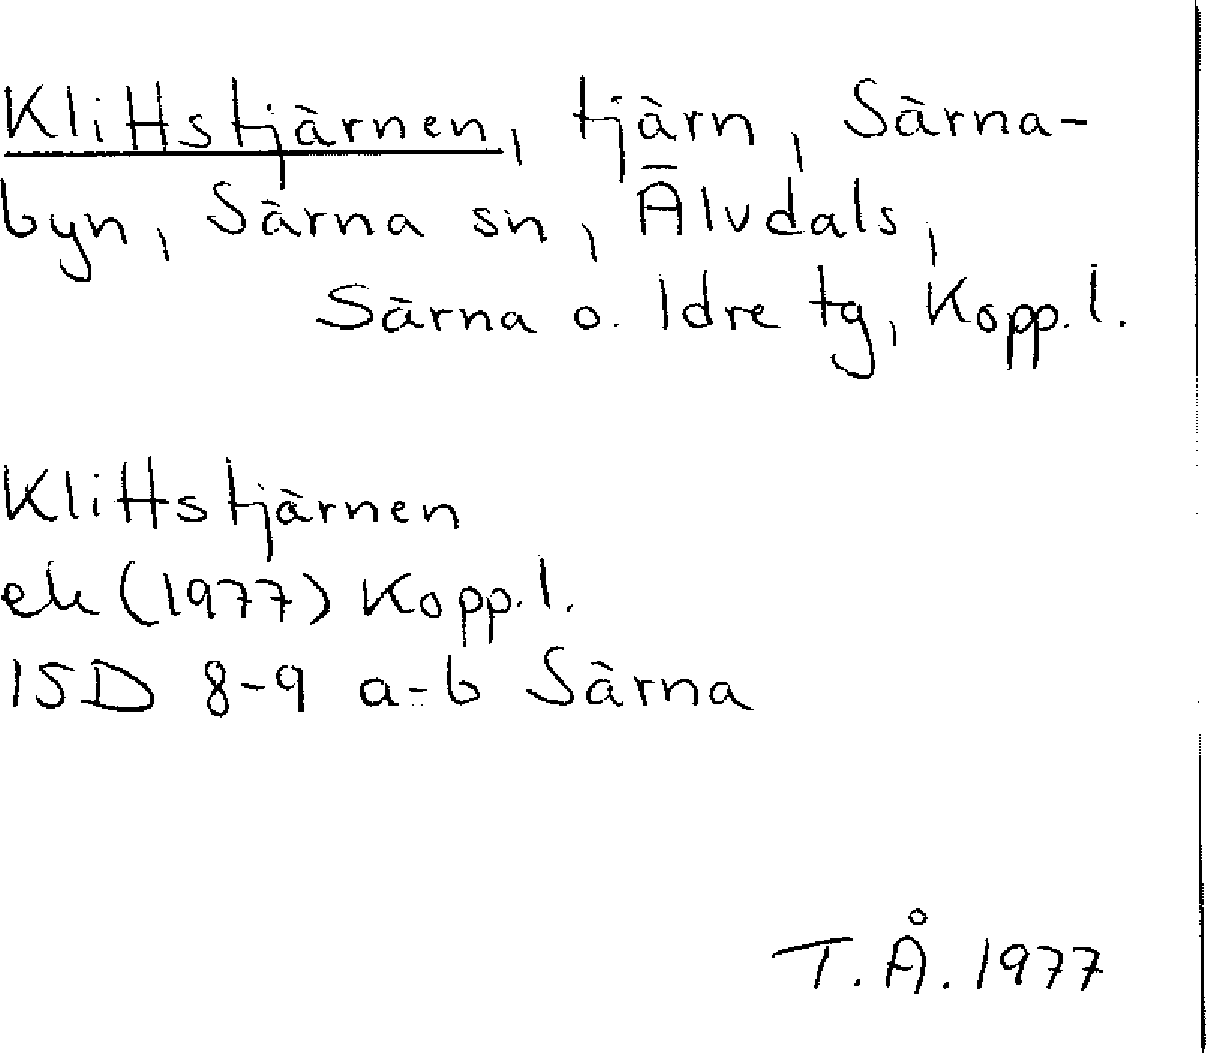 Klittstjärnen, tjärn, Särna-
byn, Särna sn, Älvdals,
Särna o. Idre tg, Kopp. l.
Klittstjärnen
ek (1977) Kopp. l.
15D 8-9 a-b Särna
T. Å. 1977